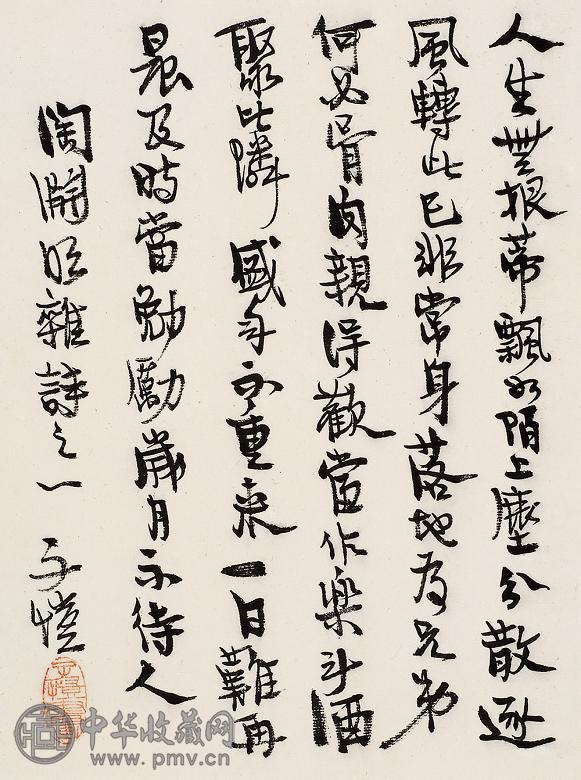 人生無根蒂飄如陌上塵分散逐
風轉此已非常身落地為兄弟
何必骨肉親得歡當作樂斗酒
聚比鄰盛年不重來一日難再
晨及時當勉勵歲月不待人
陶淵明雜詩之一 子愷
中华收藏网
www.pmv.cn